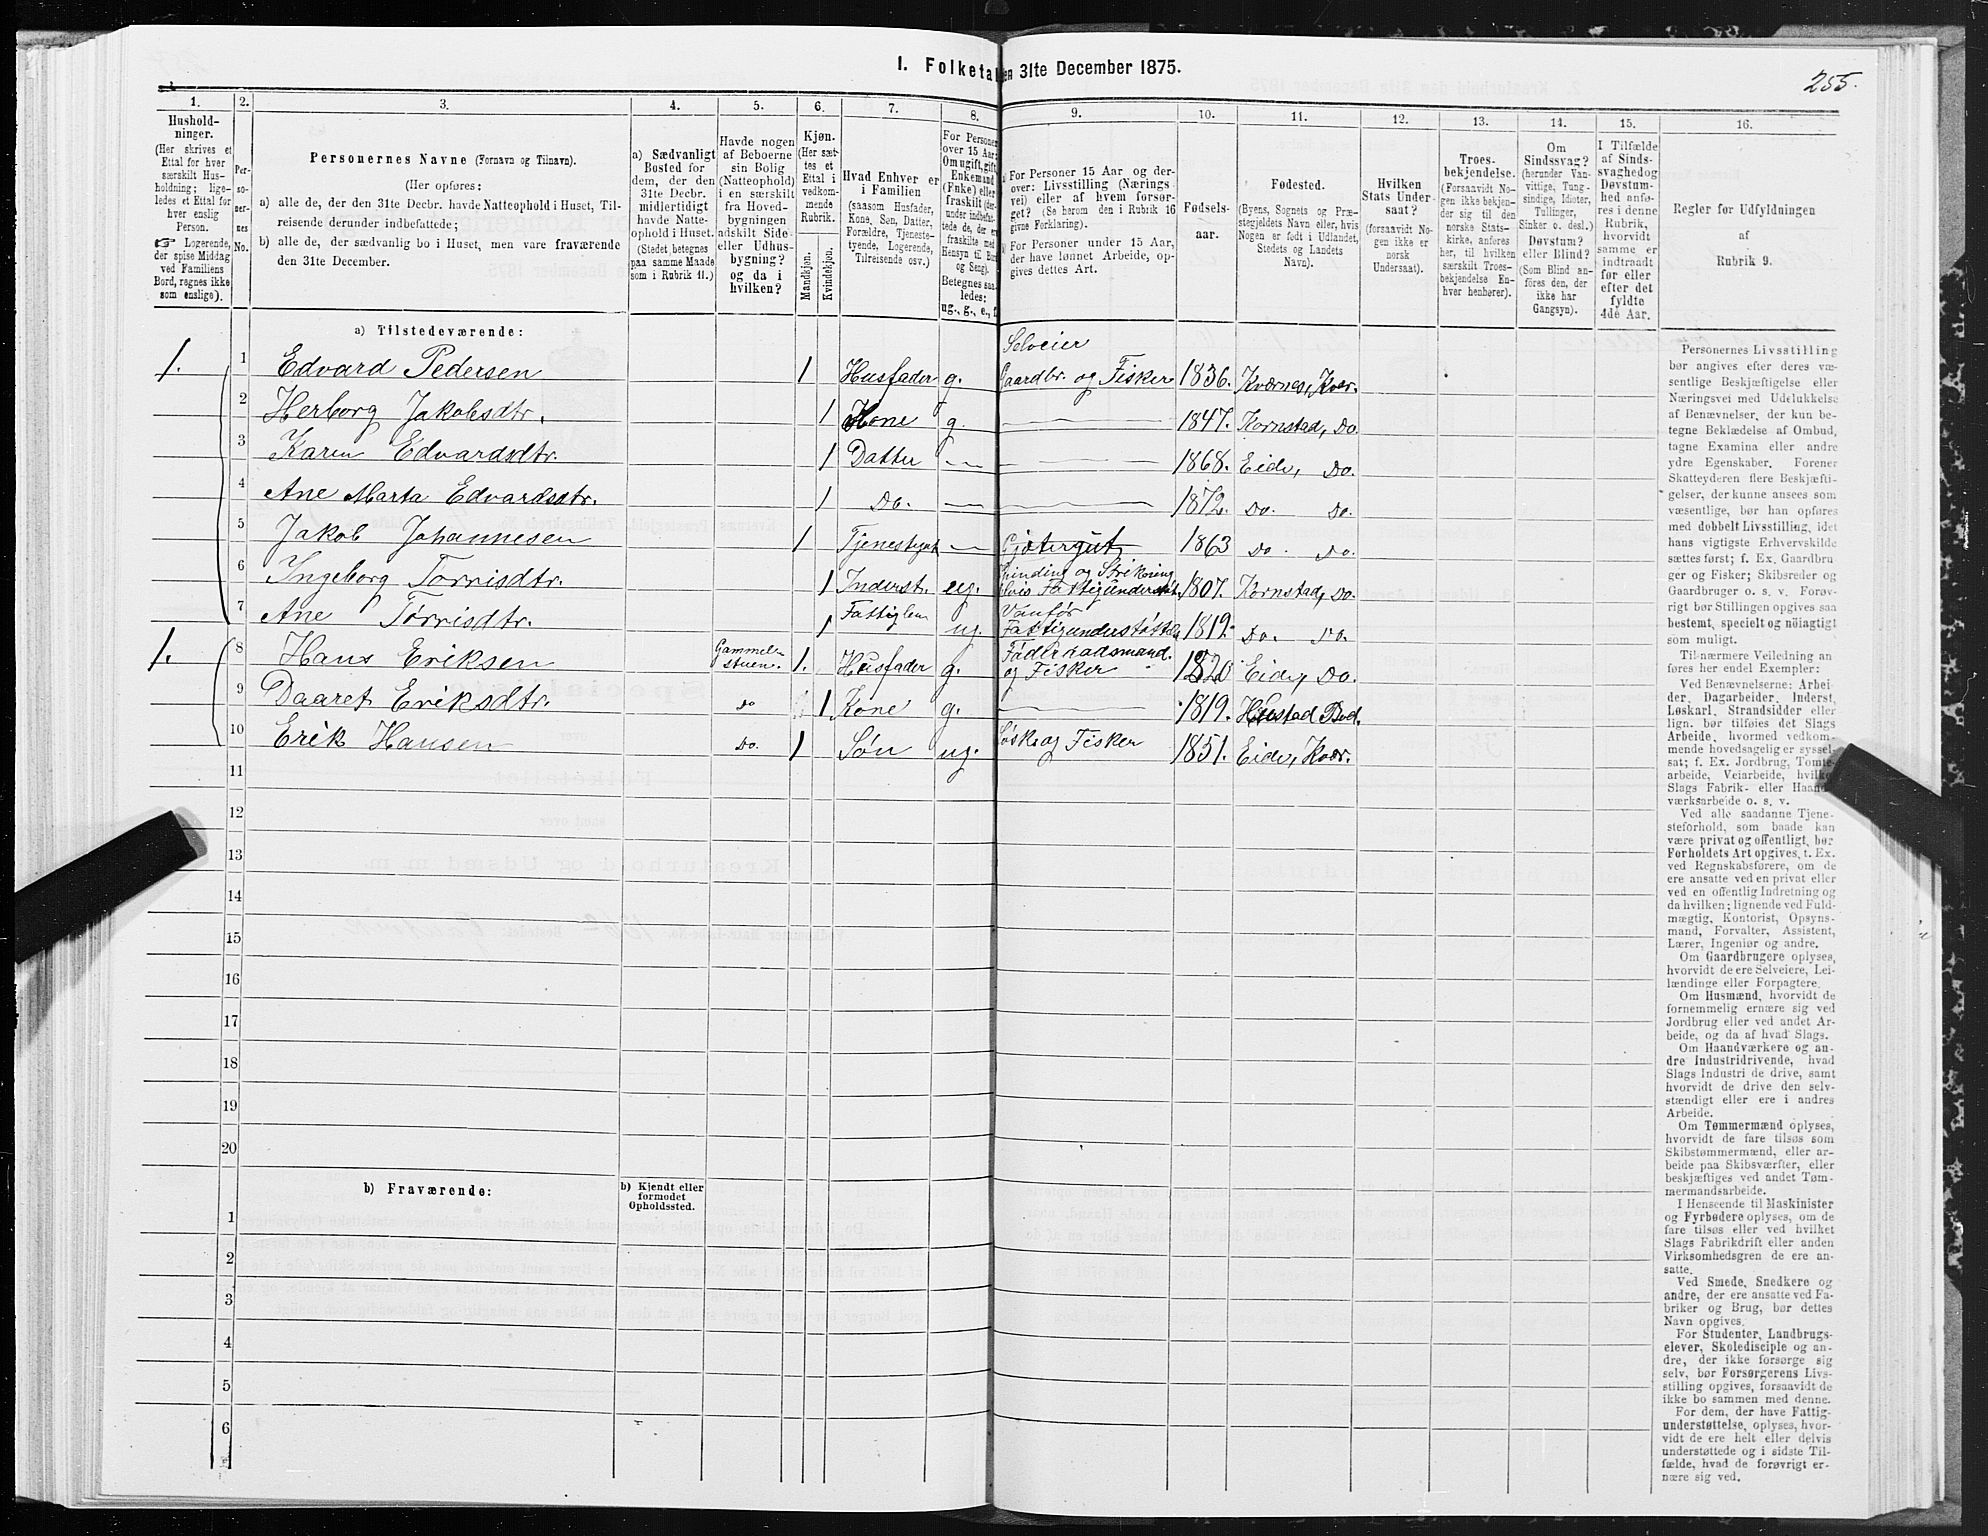 255.
I. Folketa en 31te December 1875.
1. 2. 3. 4. 5. 6. 7. 8. 9. 10. 11. 12. 13. 14. 15. 16.
Hushold-
ninger.
(Her skrives et
Ettal for hver
særskilt Hus-
holdning; lige-
ledes et Ettal for
hver enslig
Person.
☞ Logerende,
der spise Middag
ved Familiens
Bord, regnes ikke
som enslige).
Per-
so-
ner-
nes
No.
Personernes Navne (Fornavn og Tilnavn).
(Her opføres:
a) alle de, der den 31te Decbr. havde Natteophold i Huset, Til-
reisende derunder indbefattede;
b) alle de, der sædvanlig bo i Huset, men vare fraværende
den 31te December.
a) Sædvanligt
Bosted for
dem, der den
31te Decbr.
midlertidigt
havde Natte-
ophold i Huset.
(Stedet betegnes
paa samme Maade
som i Rubrik 11.)
Havde nogen
af Beboerne
sin Bolig
(Natteophold)
i en særskilt
fra Hoved-
bygningen
adskilt Side-
eller Udhus-
bygning?
og da i
hvilken?
Kjøn.
(Her sæt-
tes et
Ettal i
vedkom-
mende
Rubrik.
Mandkjøn.
Kvindekjøn.
Hvad Enhver er
i Familien
(saasom Husfader,
Kone, Søn, Datter,
Forældre, Tjeneste-
tyende, Logerende,
Tilreisende osv.)
For Personer
over 15 Aar:
Om ugift, gift,
Enkemand
(Enke) eller
fraskilt (der-
under indbefat-
tede de, der er
fraskilte med
Hensyn til Bord
og Seng).
Betegnes saa-
ledes:
ug., g., e., f.
For Personer 15 Aar og der-
over: Livsstilling (Nærings-
vei) eller af hvem forsør-
get? (Se herom den i Rubrik 16
givne Forklaring).
For Personer under 15 Aar,
der have lønnet Arbeide, op-
gives dettes Art.
Fødsels-
aar.
Fødested.
(Byens, Sognets og Præ-
stegjeldets Navn eller, hvis
Nogen er født i Udlandet,
Stedets og Landets
Navn).
Hvilken
Stats Under-
saat?
(forsaavidt No-
gen ikke er
norsk
Undersaat).
Troes-
bekjendelse.
(Forsaavidt No-
gen ikke bekjen-
der sig til den
norske Stats-
kirke, anføres
her, til hvilken
særskilt Troes-
bekjendelse En-
hver henhører).
Om
Sindssvag?
(herunder Van-
vittige, Tung-
sindige, Idioter,
Tullinger,
Sinker o. desl.)
Døvstum?
eller Blind?
(Som Blind an-
føres den, der
ikke har
Gangsyn).
I Tilfælde
af Sinds-
svaghed og
Døvstum-
hed anfø-
res i denne
Rubrik,
hvorvidt
samme er
indtraadt
før eller
efter det
fyldte
4de Aar.
Regler for Udfyldningen
af
Rubrik 9.
a) Tilstedeværende:
Selveier
1. 1 Edvard Pedersen 1 Husfader g. Gaardbr. og Fisker 1836. Kværnes, Kvær.
2 Herborg Jakobsdtr. 1 Kone g. — 1847. Kornstad, Do.
3 Karen Edvardsdtr. 1 Datter — — 1868. Eide, Do.
4 Ane Marta Edvardsdtr. 1 Do. — — 1872. Do. Do.
5 Jakob Johannesen 1 Tjenestegut — Gjætergut 1863 Do. Do.
Spinding og Strikning
6 Ingeborg Torrisdtr. 1 Inderst. 1807. Kornstad, Do.
Vanfør
7 Ane Tørrisdtr. 1 Fattiglem ug. Fattigunderstøttet 1812. Do. Do.
Gammel-
1. 8 Hans Eriksen stuen. 1. Husfader g. og Fisker 1820 Eide, Do.
9 Daaret Eriksdtr. Do 1 Kone g. — 1819. Hustad Bod.
10 Erik Hansen Do. 1 Søn ug. og Fisker 1851. Eide, Kvær.
11
12
13
14
15
16
17
18
19
20
b) Fraværende:
b) Kjendt eller
formodet
Opholdssted.
1
2
3
4
5
6
Personernes Livsstilling
bør angives efter deres væ-
sentlige Beskjæftigelse eller
Næringsvei med Udelukkelse
af Benævnelser, der kun be-
tegne Beklædelse af Ombud,
tagne Examina eller andre
ydre Egenskaber. Forener
Skatteyderen flere Beskjæfti-
gelser, der kunne ansees som
væsentlige, bør han opføres
med dobbelt Livsstilling, idet
hans vigtigste Erhvervskilde
sættes først; f. Ex. Gaardbru-
ger og Fisker; Skibsreder og
Gaardbruger o. s. v. Forøv-
rigt bør Stillingen opgives saa
bestemt, specielt og nøiagtigt
som muligt.
Til nærmere Veiledning an-
føres her endel Exempler:
Ved Benævnelserne: Arbei-
der, Dagarbeider, Inderst,
Løskarl, Strandsidder eller
lign. bør tilføies det Slags
Arbeide, hvormed vedkom-
mende hovedsagelig er syssel-
sat; f. Ex. Jordbrug, Tomte-
arbeide, Veiarbeide, hvilket
Slags Fabrik- eller Haand-
værksarbeide o. s. v.
Ved alle saadanne Tjene-
steforhold, som baade kan
være privat og offentligt, bør
Forholdets Art opgives, t. Ex.
ved Regnskabsførere, om de
ere ansatte ved en privat eller
ved en offentlig Indretning og
da hvilken; lignende ved Fuld-
mægtig, Kontorist, Opsyns-
mand, Forvalter, Assistent,
Lærer, Ingeniør og andre.
Om Gaardbrugere oplyses,
hvorvidt de ere Selveiere, Lei-
lændinge eller Forpagtere.
Om Husmænd, hvorvidt de
fornemmelig ernære sig ved
Jordbrug eller ved andet Ar-
beide, og da af hvad Slags.
Om Haandværkere og an-
dre Industridrivende, hvad
Slags Industri de drive, samt
hvorvidt de drive den selv-
stændigt eller ere i andres
Arbeide.
Om Tømmermænd oplyses,
hvorvidt de fare tilsøs som
Skibstømmermænd, eller ar-
beide paa Skibsværfter, eller
beskjæftiges ved andet Tøm-
mermandsarbeide.
I Henseende til Maskinister
og Fyrbødere oplyses, om de
fare tilsøs eller ved hvilket
Slags Fabrikdrift eller anden
Virksomhedsgren de ere an-
satte.
Ved Smede, Snedkere og
andre, der ere ansatte ved Fa-
briker og Brug, bør dettes
Navn opgives.
For Studenter, Landbrugs-
elever, Skoledisciple og an-
dre, der ikke forsørge sig
selv, bør Forsørgerens Livs-
stilling opgives, forsaavidt de
ikke bo sammen med denne.
For dem, der have Fattig-
understøttelse, oplyses, hvor-
vidt de ere helt eller delvis
understøttede og i sidste Til-
fælde, hvad de forøvrigt er-
nære sig ved.